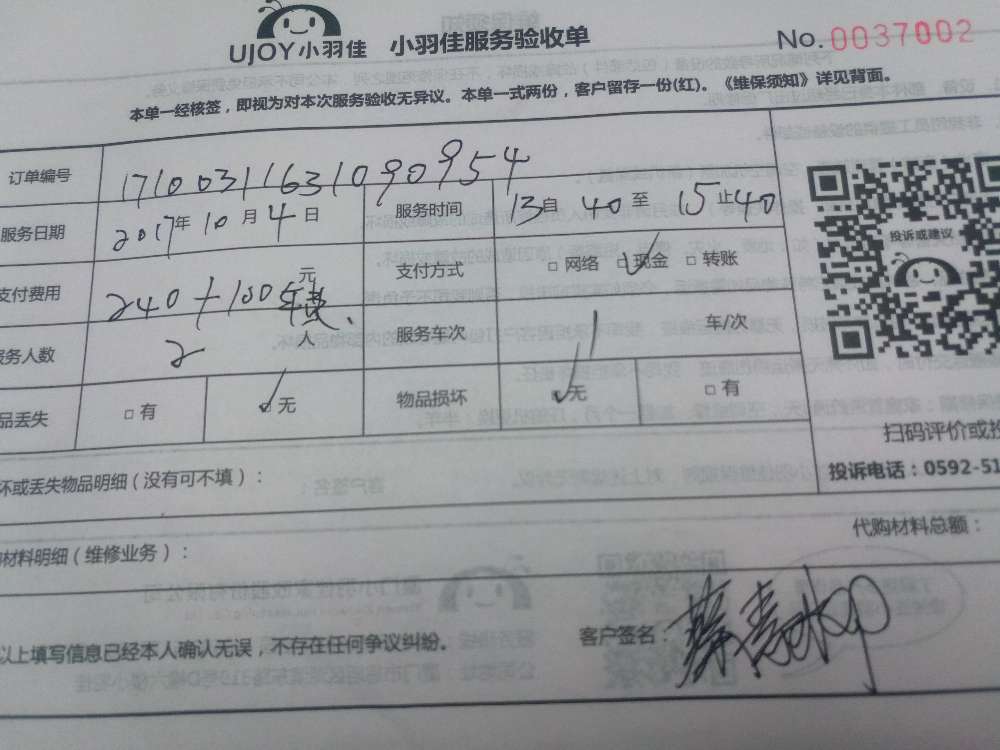 UJOY小羽佳 小羽佳服务验收单 No. 0037002
本单一经核签，即视为对本次服务验收无异议。本单一式两份，客户留存一份(红)。《维保须知》详见背面。
订单编号 17100311631090954
服务日期 2017年 10月 4日 服务时间 13自 40至 15止40
支付费用 240+100年费、元 支付方式 □ 网络 □ 现金 □ 转账
投诉或建议
服务人数 2 人 服务车次 1 车/次
品丢失 □ 有 □ 无 物品损坏 □ 无 □ 有
扫码评价或投
坏或丢失物品明细（没有可不填）： 投诉电话：0592-51
材料明细（维修业务）： 代购材料总额：
以上填写信息已经本人确认无误，不存在任何争议纠纷。 客户签名：